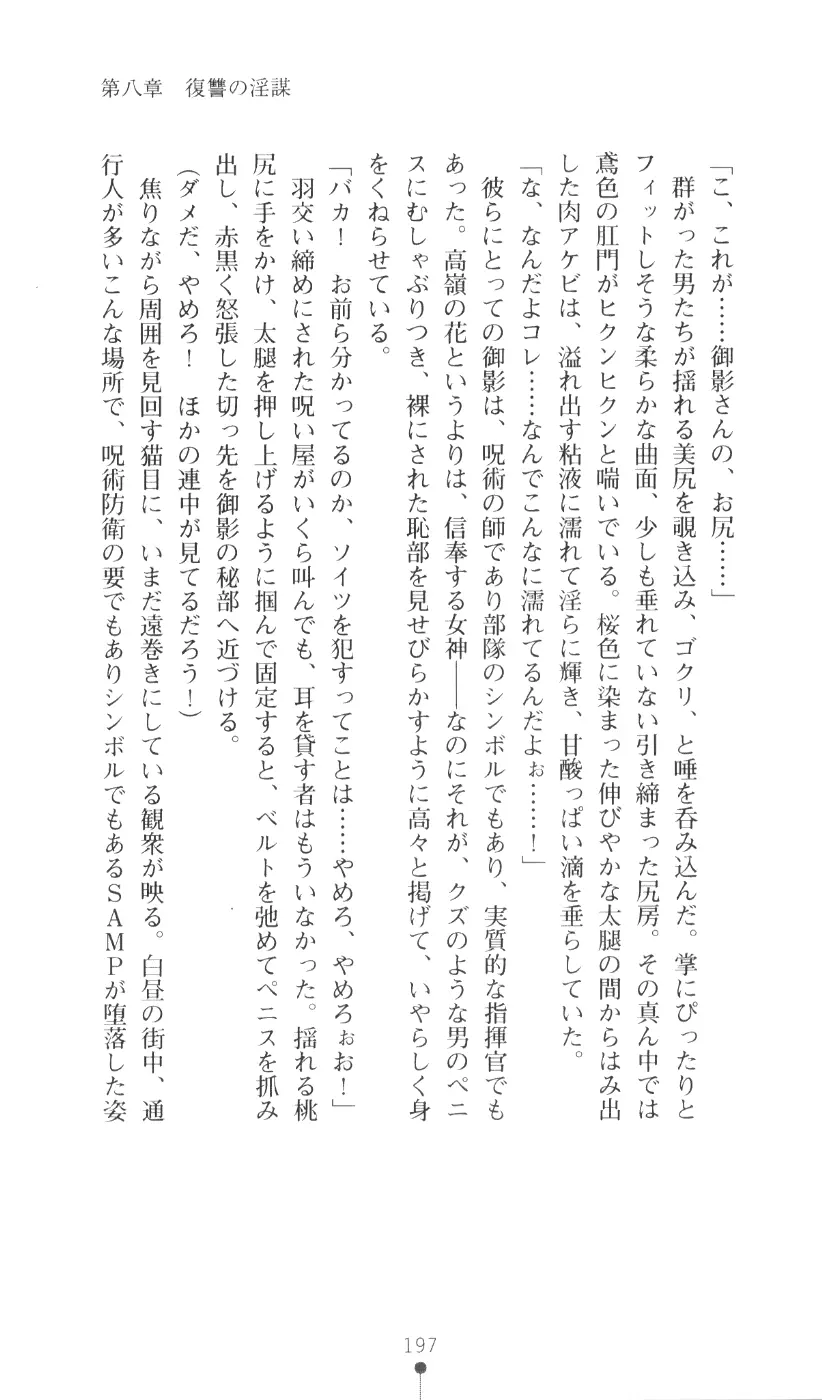 第八章　復讐の淫謀
「こ、これが……御影さんの、お尻……」
　群がった男たちが揺れる美尻を覗き込み、ゴクリ、と唾を呑み込んだ。掌にぴったりと
フィットしそうな柔らかな曲面、少しも垂れていない引き締まった尻房。その真ん中では
鳶色の肛門がヒクンヒクンと喘いでいる。桜色に染まった伸びやかな太腿の間からはみ出
した肉アケビは、溢れ出す粘液に濡れて淫らに輝き、甘酸っぱい滴を垂らしていた。
「な、なんだよコレ……なんでこんなに濡れてるんだよぉ……！」
　彼らにとっての御影は、呪術の師であり部隊のシンボルでもあり、実質的な指揮官でも
あった。高嶺の花というよりは、信奉する女神――なのにそれが、クズのような男のペニ
スにむしゃぶりつき、裸にされた恥部を見せびらかすように高々と掲げて、いやらしく身
をくねらせている。
「バカ！　お前ら分かってるのか、ソイツを犯すってことは……やめろ、やめろぉお！」
　羽交い締めにされた呪い屋がいくら叫んでも、耳を貸す者はもういなかった。揺れる桃
尻に手をかけ、太腿を押し上げるように掴んで固定すると、ベルトを弛めてペニスを抓み
出し、赤黒く怒張した切っ先を御影の秘部へ近づける。
（ダメだ、やめろ！　ほかの連中が見てるだろう！）
　焦りながら周囲を見回す猫目に、いまだ遠巻きにしている観衆が映る。白昼の街中、通
行人が多いこんな場所で、呪術防衛の要でもありシンボルでもあるＳＡＭＰが堕落した姿
197